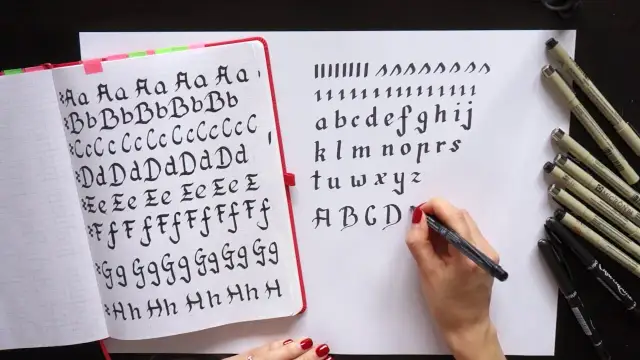 Aa Aa Aa Aa Aa
Bb Bb Bb Bb Bb
Cc Cc Cc Cc Cc Cc C
Dd Dd Dd Dd Dd
Ee Ee Ee Ee Ee E
Ff Ff Ff Ff Ff Ff
Gg Gg Gg Gg Gg Gg
Hh Hh Hh Hh H
a b c d e f g h i j
k l m n o p r s
t u w x y z
A B C D